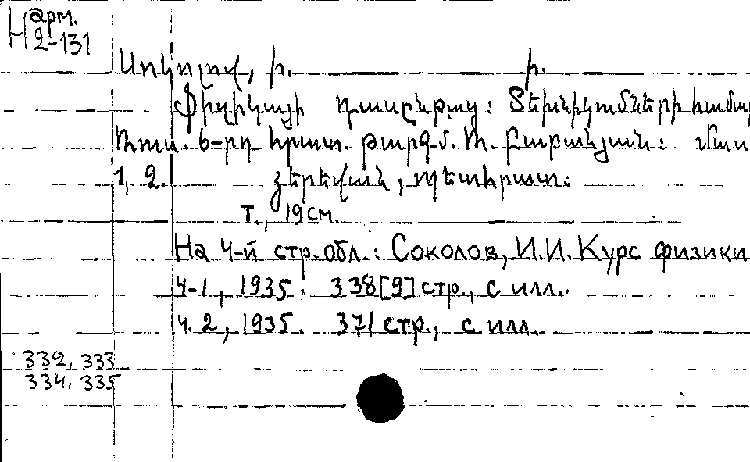 Н арм.
2-131
Սոկոլով, Ի. Ի.
Ֆիզիկայի դասընթաց: Տեխնիկումների համար
Ռուս. 6-րդ հրատ. թարգմ. Մ. մաս
1, 2. Երևան, Պետհրատ.
т., 19 см.
На 4-й стр. обл.: Соколов, И.И. Курс физики
ч-1, 1935. 338[9] стр., с илл.
ч. 2, 1935. 371 стр., с илл.
332, 333
334, 335